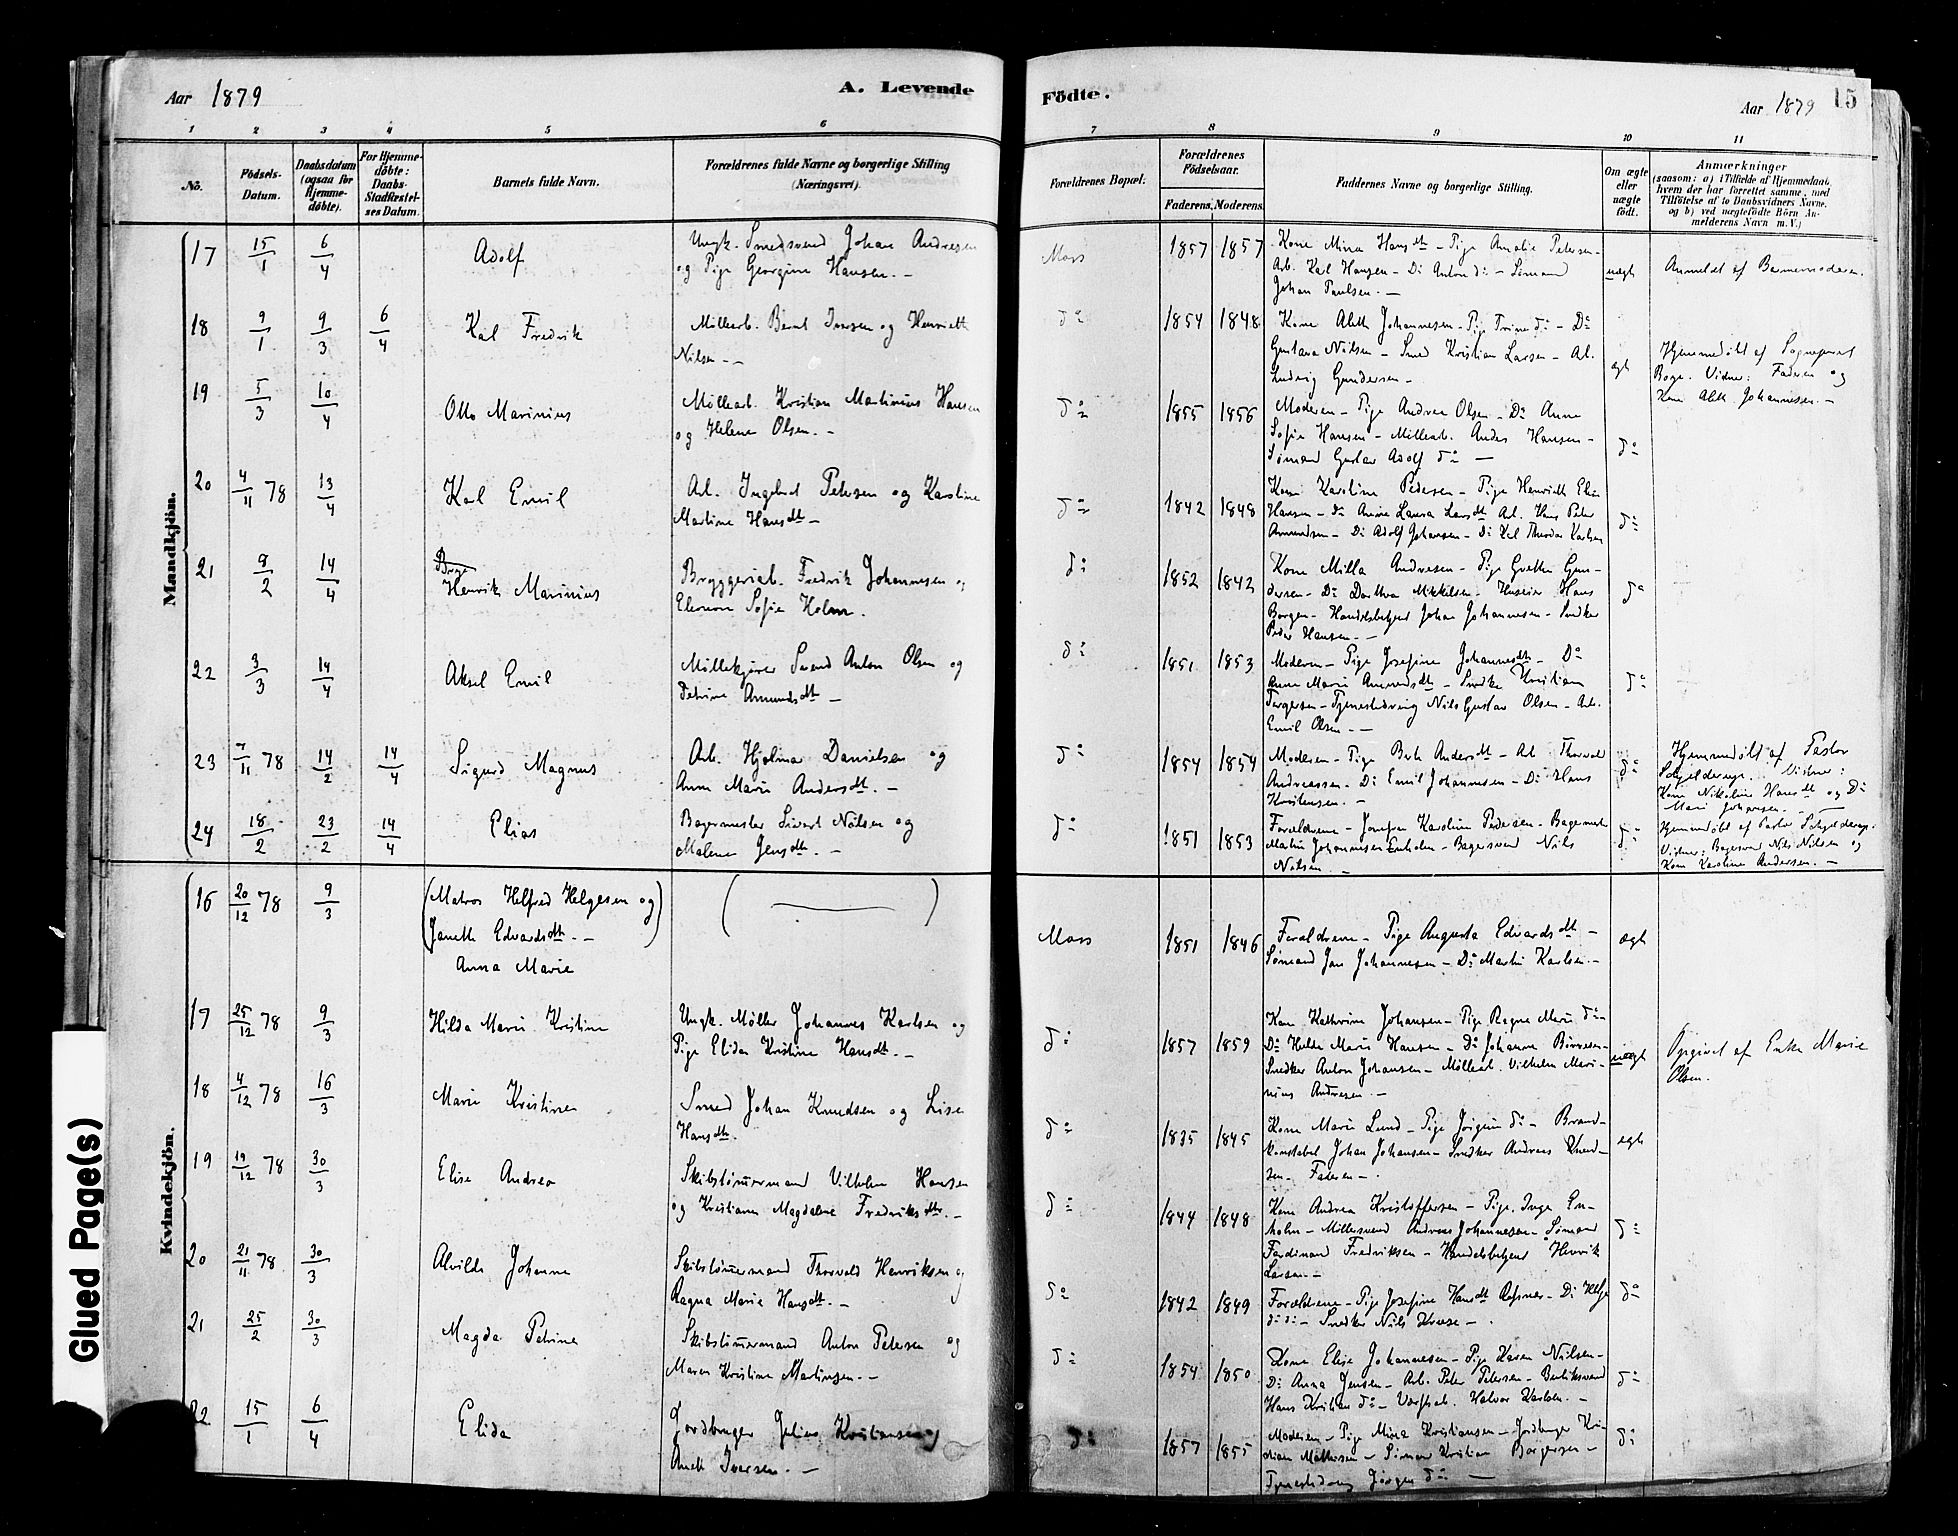 Aar 1879
A. Levende
Födte.
Aar 1879
15
1 2 3 4 5 6 7 8 9 10 11
No.
Födsels-
Datum.
Daabsdatum
(ogsaa for
Hjemme-
döbte).
For Hjemme-
döbte:
Daabs-
Stadfæstel-
ses Datum.
Barnets fulde Navn.
Forældrenes fulde Navne og borgerlige Stilling
(Næringsvei).
Forældrenes Bopæl.
Forældrenes
Födselsaar.
Faderens. Moderens.
Faddernes Navne og borgerlige Stilling.
Om ægte
eller
uægte
födt.
Anmærkninger
(saasom: a) i Tilfælde af Hjemmedaab,
hvem der har forrettet samme, med
Tilföielse af to Daabsvidners Navne,
og b) ved uægtefödte Börn An-
melderens Navn m. V.)
Mandkjön.
17 15/1 6/4 Adolf
Ungk. Smedsvend Johan Andresen
og Pige Georgine Hansen. —
Moss 1857 1857
Kone Mina Hansdtr — Pige Amalie Petersen —
Arb. Karl Hansen — Do Anton do — Sømand
Johan Paulsen. —
uægte
Anmeldt af Barnemoderen.
18 9/1 9/3 6/4 Karl Fredrik
Møllearb. Bernt Iversen og Henriette
Nilsen —
do 1854 1848
Kone Aleth Johannesen — Pige Trine do — Do
Gustava Nilsen — Smed Kristian Larsen — Arb.
Ludvig Gundersen —
ægte
Hjemmedøbt af Sognepræst
Boge. Vidner: Faderen og
Kone Aleth Johannesen. —
19 5/3 10/4 Otto Marinius
Møllearb. Kristian Martinius Hansen
og Helene Olsen. —
do 1855 1856
Moderen — Pige Andrea Olsen — Do Anne
Sofie Hansen — Møllearb. Anders Hansen —
Sømand Gustav Adolf do —
do
20 4/11 78 13/4 Karl Emil
Arb. Ingebret Petersen og Karoline
Martine Hansdtr —
do 1842 1848
Kone Karoline Pedersen — Pige Henriette Elise
Hansen — do Anne Laura Larsdtr Arb. Hans Peter
Amundsen — Do Adolf Johansen — Do Karl Theodor Karlsen
do
21 8/2 14/4
Henrik Marinius
Bryggeriarb. Fredrik Johannesen og
Eleonore Sofie Holm.
do 1852 1842
Kone Milla Andresen — Pige Grethe Gun-
dersen — Do Dorthea Mikkelsen — Huseier Hans
Borgen — Handelsbetjent Johan Johannesen — Snedker
Peder Hansen. —
do
22 3/3 14/4 Aksel Emil
Møllekjører Svend Anton Olsen og
Petrine Amundsdtr —
do 1851 1853
Moderen — Pige Josefine Johannesdtr — Do
Anne Marie Amundsdtr — Snedker Kristian
Torgersen — Tjenestedreng Nils Gustav Olsen — Arb.
Emil Olsen. —
do
23 7/11 78 14/2 14/4 Sigurd Magnus
Arb. Hjalmar Danielsen og
Anne Marie Andersdtr. —
do 1854 1854
Moderen — Pige Berte Andersdtr — Arb Thorvald
Andreassen — Do Emil Johannesen — Do Hans
Kristensen. —
do
Hjemmedøbt af Pastor
Schjelderup. Vidner:
Kone Nikoline Hansdtr og Do
Marie Johansen. —
24 18/2 23/2 14/4 Elias
Bagermester Sivert Nilsen og
Malene Jensdtr. —
do 1851 1853
Forældrene — Jomfru Karoline Pedersen — Bagermester
Martin Johannesen Enholm — Bagersvend Nils
Nilsen. —
do
Hjemmedøbt af Pastor Schjelderup.
Vidner: Bagersvend Nils Nilsen og
Kone Karoline Andersen. —
Kvindekjön.
16 20/12 78 9/3
(Matros Helfred Helgesen og
Janette Edvardsdtr. —)
Anna Marie
( — )
Moss 1851 1846
Forældrene — Pige Augusta Edvardsdtr —
Sømand Jan Johannesen — Do Martin Karlsen. —
ægte
17 25/12 78 9/3 Hilda Marie Kristine
Ungk. Møller Johannes Karlsen og
Pige Elida Kristine Hansdtr. —
do 1857 1859
Kone Kathrine Johansen — Pige Ragna Marie do —
Do Hulda Marie Hansen — Do Johanne —
Snedker Anton Johansen — Møllearb. Vilhelm Mari-
nius Andresen. —
uægte
Opgivet af Enke Marie
Olsen.
18 4/12 78 16/3 Marie Kristine
Smed Johan Knudsen og Lise
Hansdtr.
do 1835 1845
Kone Marie Lund — Pige Jørgine do — Brand-
konstabel Johan Johansen — Snedker Andreas Knud-
sen — Faderen —
ægte
19 19/12 78 30/3 Elise Andrea
Skibstømmermand Vilhelm Hansen
og Kristiane Magdalene Fredriksdtr. —
do 1844 1848
Kone Andrea Kristoffersen — Pige Inga En-
holm — Møllersvend Andreas Johannesen — Sømand
Ferdinand Fredriksen — Handelsbetjent Henrik
Larsen —
do
20 21/11 78 30/3 Alvilde Johanne
Skibstømmermand Thorvald Henriksen og
Ragna Marie Hansdtr. —
do 1842 1849
Forældrene — Pige Josefine Hansdtr — Do Helga
do do — Snedker Nils Kruse —
do
21 25/2 30/3 Magda Petrine
Skibstømmermand Anton Petersen og
Maren Kristine Martinsen. —
do 1854 1850
Kone Elise Johannesen — Pige Karen Nilsen —
Do Anna Jensen — Arb. Peter Petersen —
Hans Kristian do — Værftsarb. Halvor Karlsen. —
do
22 15/1 6/4 Elida
Jordbruger Julius Kristiansen og
Anette Iversen. —
do 1857 1855
Moderen — Pige Mina Kristiansen — Jordbruger Kri-
stian Mathisen — Sømand Kristian Børgersen —
Tjenestedreng Jørgen do —
do
Glued Page(s)